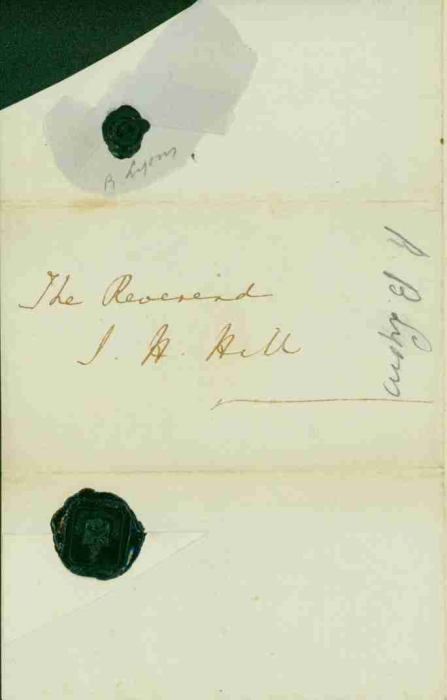 R Lyons
The Reverend
J. H. Hill
R B Lyons